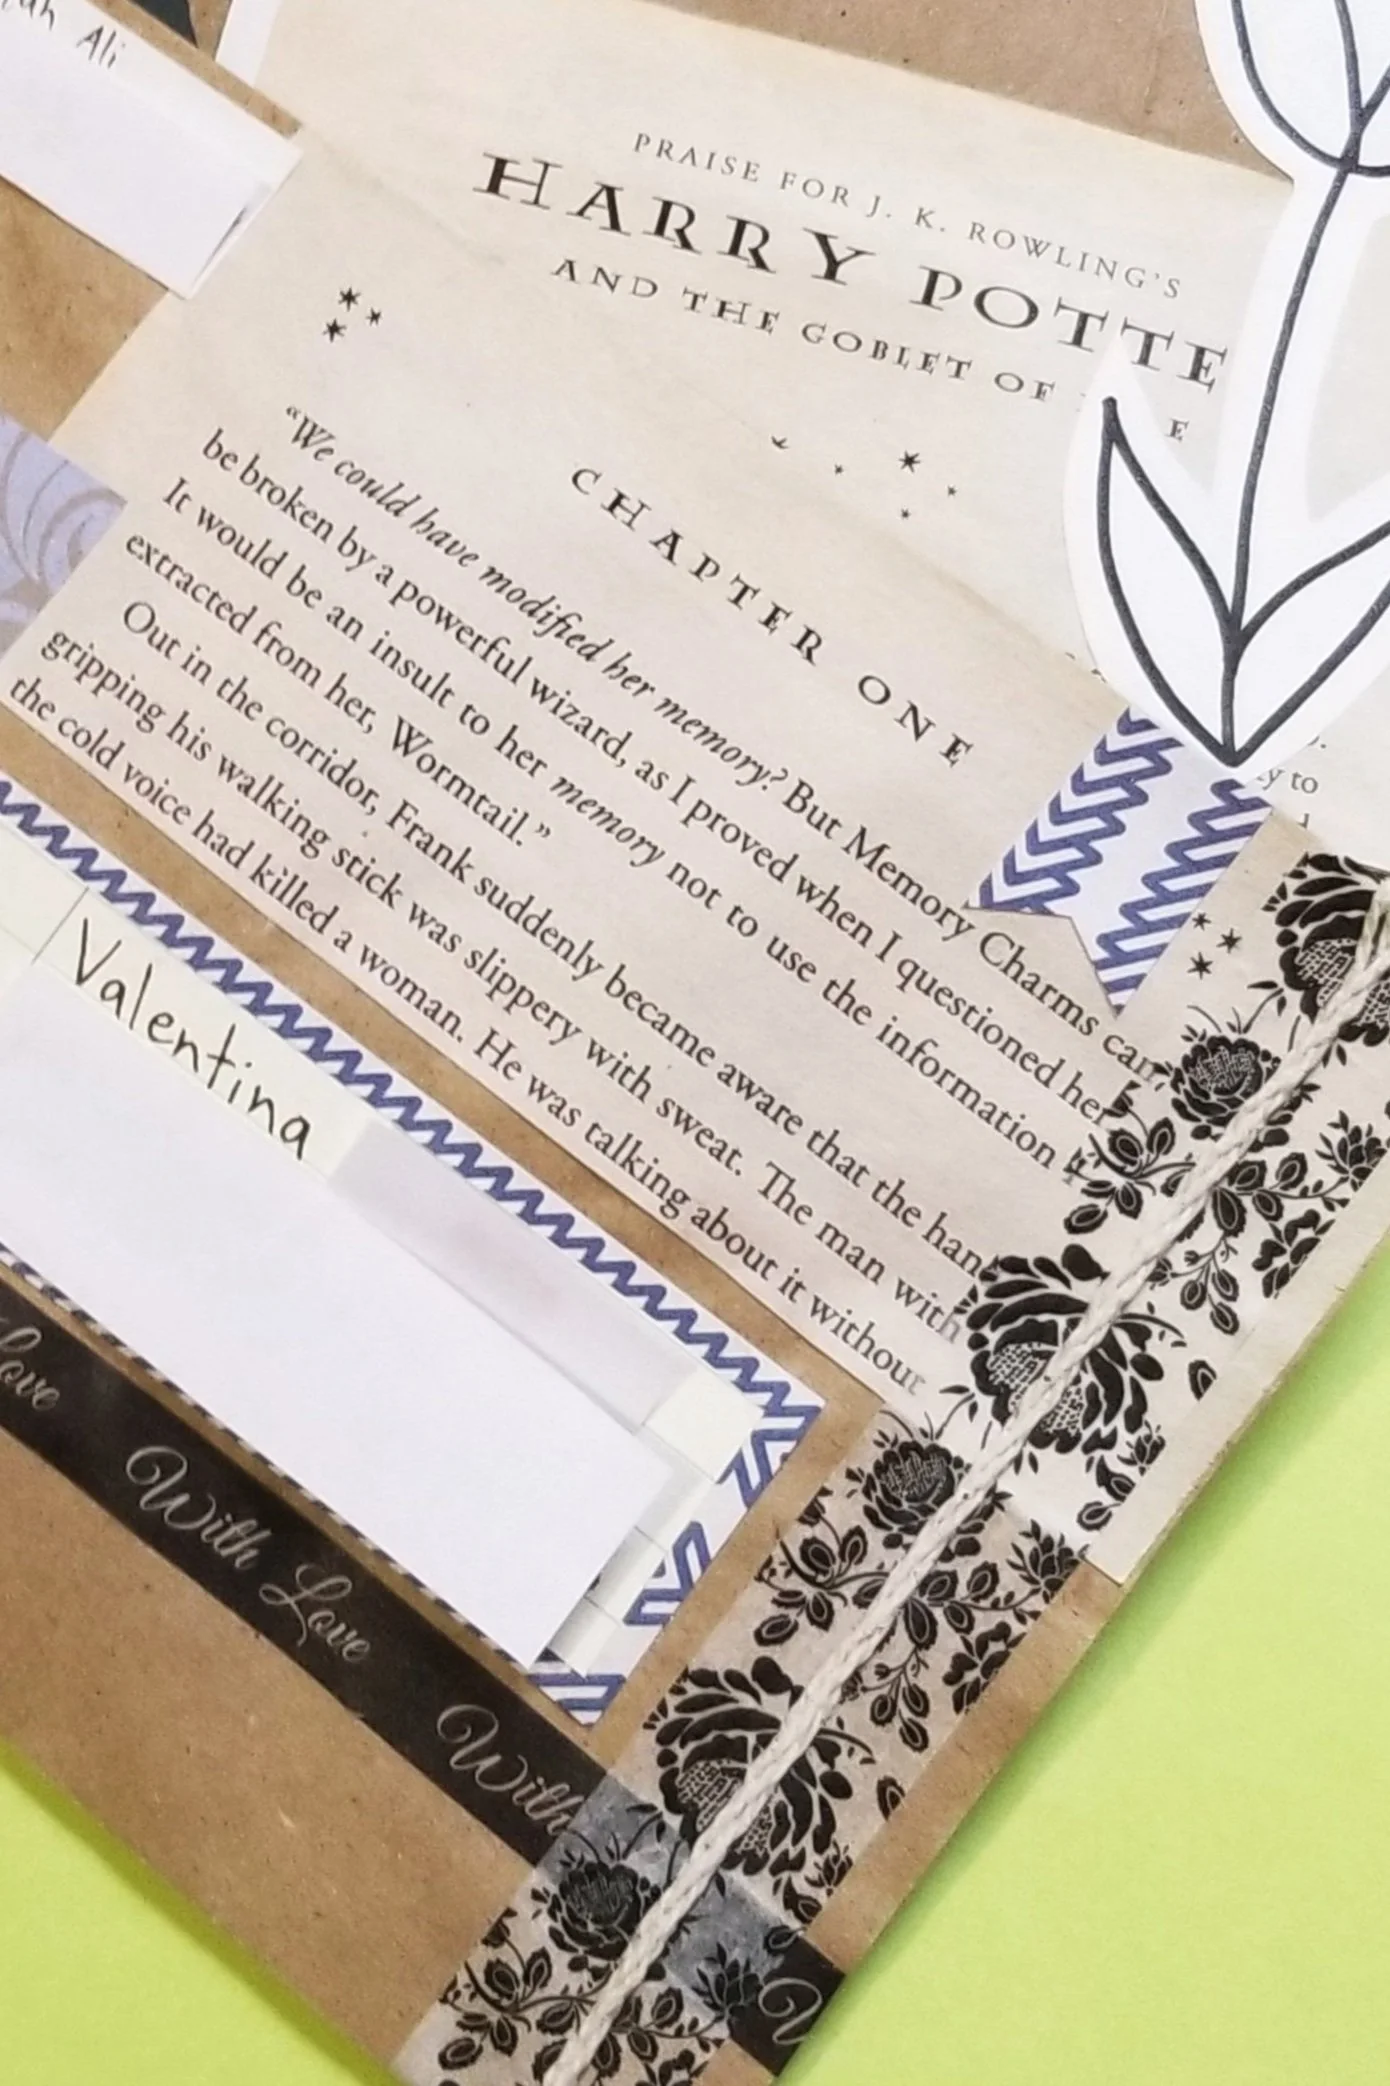 Ali
PRAISE FOR J. K. ROWLING'S
HARRY POTTE
AND THE GOBLET OF
E
CHAPTER ONE
“We could have modified her memory? But Memory Charms can
be broken by a powerful wizard, as I proved when I questioned her
It would be an insult to her memory not to use the information I
extracted from her, Wormtail.”
Out in the corridor, Frank suddenly became aware that the han
gripping his walking stick was slippery with sweat. The man with
the cold voice had killed a woman. He was talking about it without
y to
Valentina
Love
With Love
With